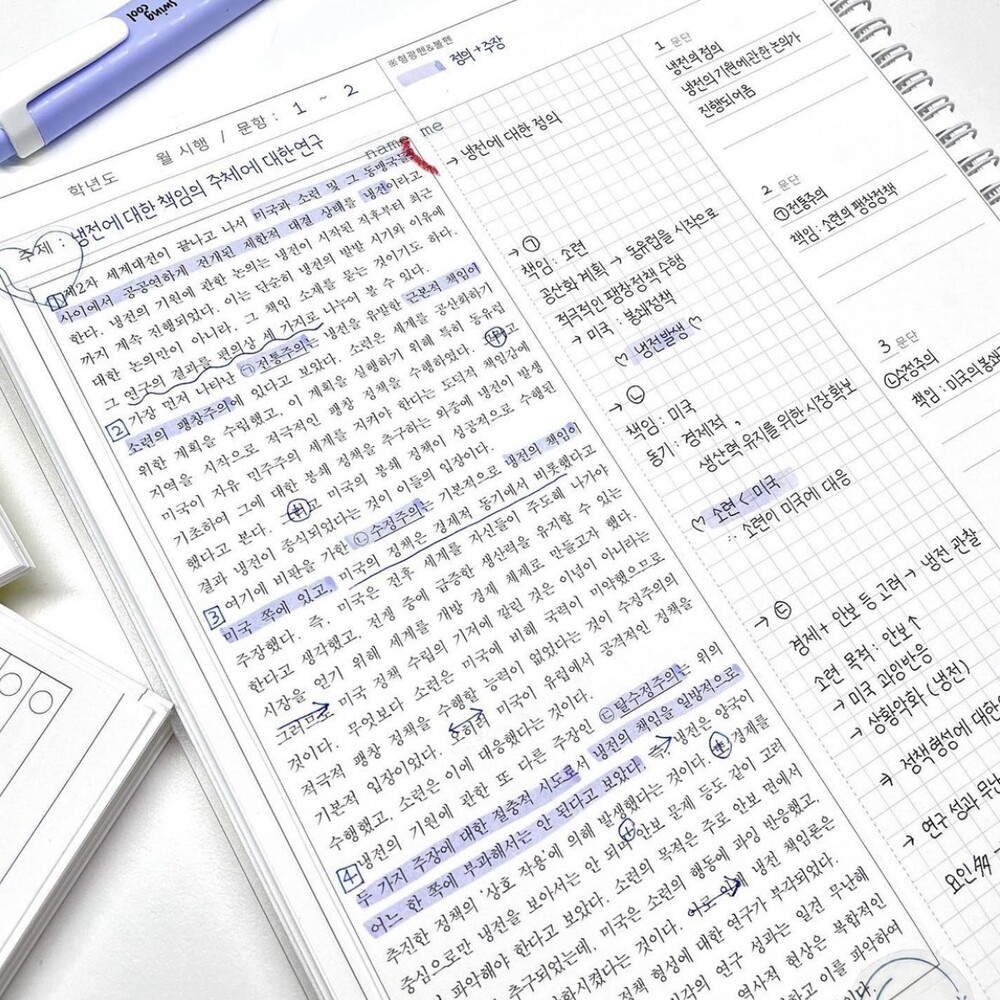 swing cool
학년도 월 시행 / 문항 : 1 ~ 2
※형광펜&볼펜
정의 + 주장
name me
주제 : 냉전에 대한 책임의 주체에 대한 연구
1 제2차 세계대전이 끝나고 나서 미국과 소련 및 그 동맹국들
사이에서 공공연하게 전개된 제한적 대결 상태를 냉전이라고
한다. 냉전의 기원에 관한 논의는 냉전이 시작된 직후부터 최근
까지 계속 진행되었다. 이는 단순히 냉전의 발발 시기와 이유에
대한 논의만이 아니라, 그 책임 소재를 묻는 것이기도 하다.
그 연구의 결과를 편의상 세 가지로 나누어 볼 수 있다.
2 가장 먼저 나타난 ㉠전통주의는 냉전을 유발한 근본적 책임이
소련의 팽창주의에 있다고 보았다. 소련은 세계를 공산화하기
위한 계획을 수립했고, 이 계획을 실행하기 위해 특히 동유럽
지역을 시작으로 적극적인 팽창 정책을 수행하였다. 그리고
미국이 자유 민주주의 세계를 지켜야 한다는 도덕적 책임감에
기초하여 그에 대한 봉쇄 정책을 추구하는 와중에 냉전이 발생
했다고 본다. 그리고 미국의 봉쇄 정책이 성공적으로 수행된
결과 냉전이 종식되었다는 것이 이들의 입장이다.
3 여기에 비판을 가한 ㉡수정주의는 기본적으로 냉전의 책임이
미국 쪽에 있고, 미국의 정책은 경제적 동기에서 비롯했다고
주장했다. 즉, 미국은 전후 세계를 자신들이 주도해 나가야
한다고 생각했고, 전쟁 중에 급증한 생산력을 유지할 수 있는
시장을 얻기 위해 세계를 개방 경제 체제로 만들고자 했다.
그러므로 미국 정책 수립의 기저에 깔린 것은 이념이 아니라는
것이다. 무엇보다 소련은 미국에 비해 국력이 미약했으므로
적극적 팽창 정책을 수행할 능력이 없었다는 것이 수정주의의
기본적 입장이었다. 오히려 미국이 유럽에서 공격적인 정책을
수행했고, 소련은 이에 대응했다는 것이다.
4 냉전의 기원에 관한 또 다른 주장인 ㉢탈수정주의는 위의
두 가지 주장에 대한 절충적 시도로서 냉전의 책임을 일방적으로
어느 한 쪽에 부과해서는 안 된다고 보았다. 즉, 냉전은 양국이
추진한 정책의 '상호 작용'에 의해 발생했다는 것이다. 또 경제를
중심으로만 냉전을 보아서는 안 되며 안보 문제 등도 같이 고려
파악해야 한다고 보았다. 소련의 목적은 주로 안보 면에서
추구되었는데, 미국은 소련의 행동에 과잉 반응했고,
화시켰다는 것이다. 이로 인해 냉전 책임론은
정책 형성에 대한 연구가 부각되었다.
각의 연구 성과는 일견 무난해
역사적 현상은 복합적인
하고 이를 파악하여
→ 냉전에 대한 정의
→ ㉠
책임 : 소련
공산화 계획 → 동유럽을 시작으로
적극적인 팽창정책 수행
→ 미국 : 봉쇄정책
♡ 냉전발생 ♡
→ ㉡
책임 : 미국
동기 : 경제적,
생산력 유지를 위한 시장 확보
♡ 소련 < 미국
∴ 소련이 미국에 대응
→ ㉢
경제 + 안보 등 고려 → 냉전 관찰
소련 목적 : 안보↑
→ 미국 과잉반응
→ 상황악화 (냉전)
→ 정책 형성에 대한
→ 연구 성과 무난
요인 多
1 문단
냉전의 정의
냉전의 기원에 관한 논의가
진행되어옴
2 문단
㉠전통주의
책임 : 소련의 팽창정책
3 문단
㉡수정주의
책임 : 미국의 봉쇄